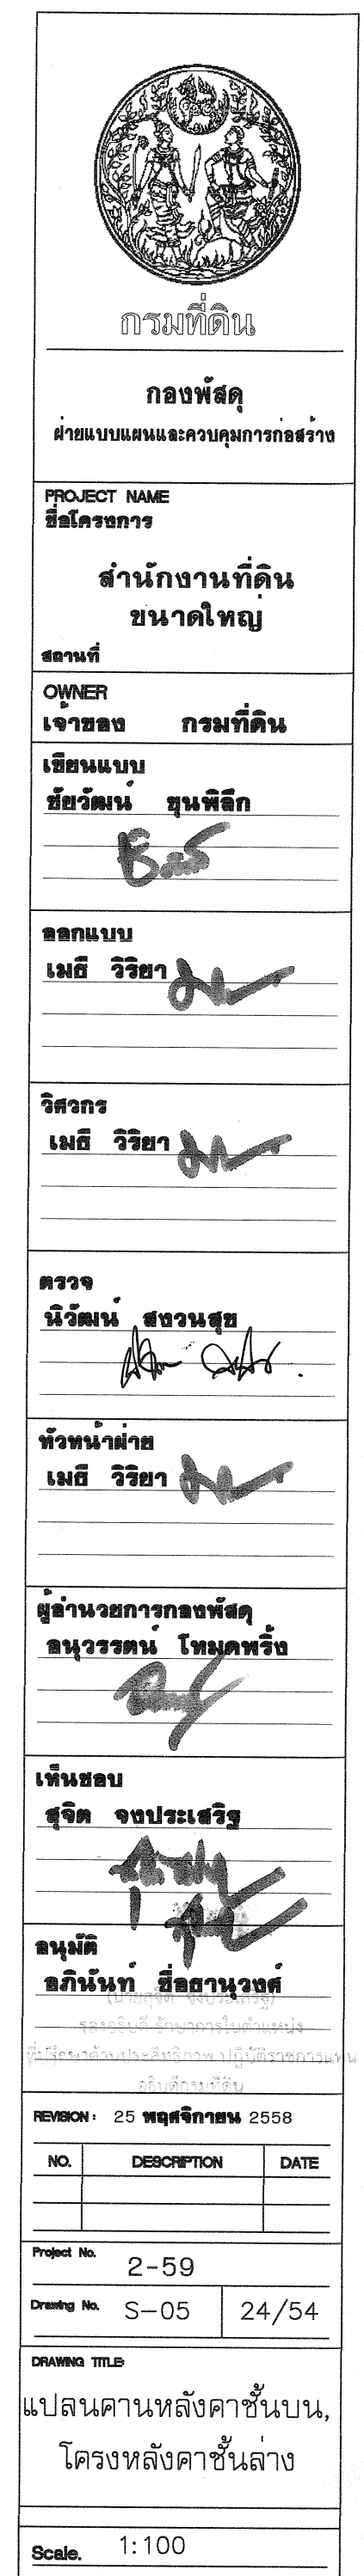 กรมที่ดิน
กองพัสดุ
ฝ่ายแบบแผนและควบคุมการก่อสร้าง
PROJECT NAME
ชื่อโครงการ
สำนักงานที่ดิน
ขนาดใหญ่
สถานที่
OWNER
เจ้าของ กรมที่ดิน
เขียนแบบ
ชัยวัฒน์ ขุนพิลึก
ออกแบบ
เมธี วิริยา
วิศวกร
เมธี วิริยา
ตรวจ
นิวัฒน์ สงวนสุข
หัวหน้าฝ่าย
เมธี วิริยา
ผู้อำนวยการกองพัสดุ
อนุวรรตน์ โหมดพริ้ง
เห็นชอบ
สุจิต จงประเสริฐ
อนุมัติ
อภินันท์ ซื่อธานุวงศ์
(นายสุจิต จงประเสริฐ)
รองอธิบดี รักษาการในตำแหน่ง
ที่ปรึกษาด้านประสิทธิภาพ ปฏิบัติราชการแทน
อธิบดีกรมที่ดิน
REVISION : 25 พฤศจิกายน 2558
NO. DESCRIPTION DATE
Project No. 2-59
Drawing No. S-05 24/54
DRAWING TITLE:
แปลนคานหลังคาชั้นบน,
โครงหลังคาชั้นล่าง
Scale. 1:100